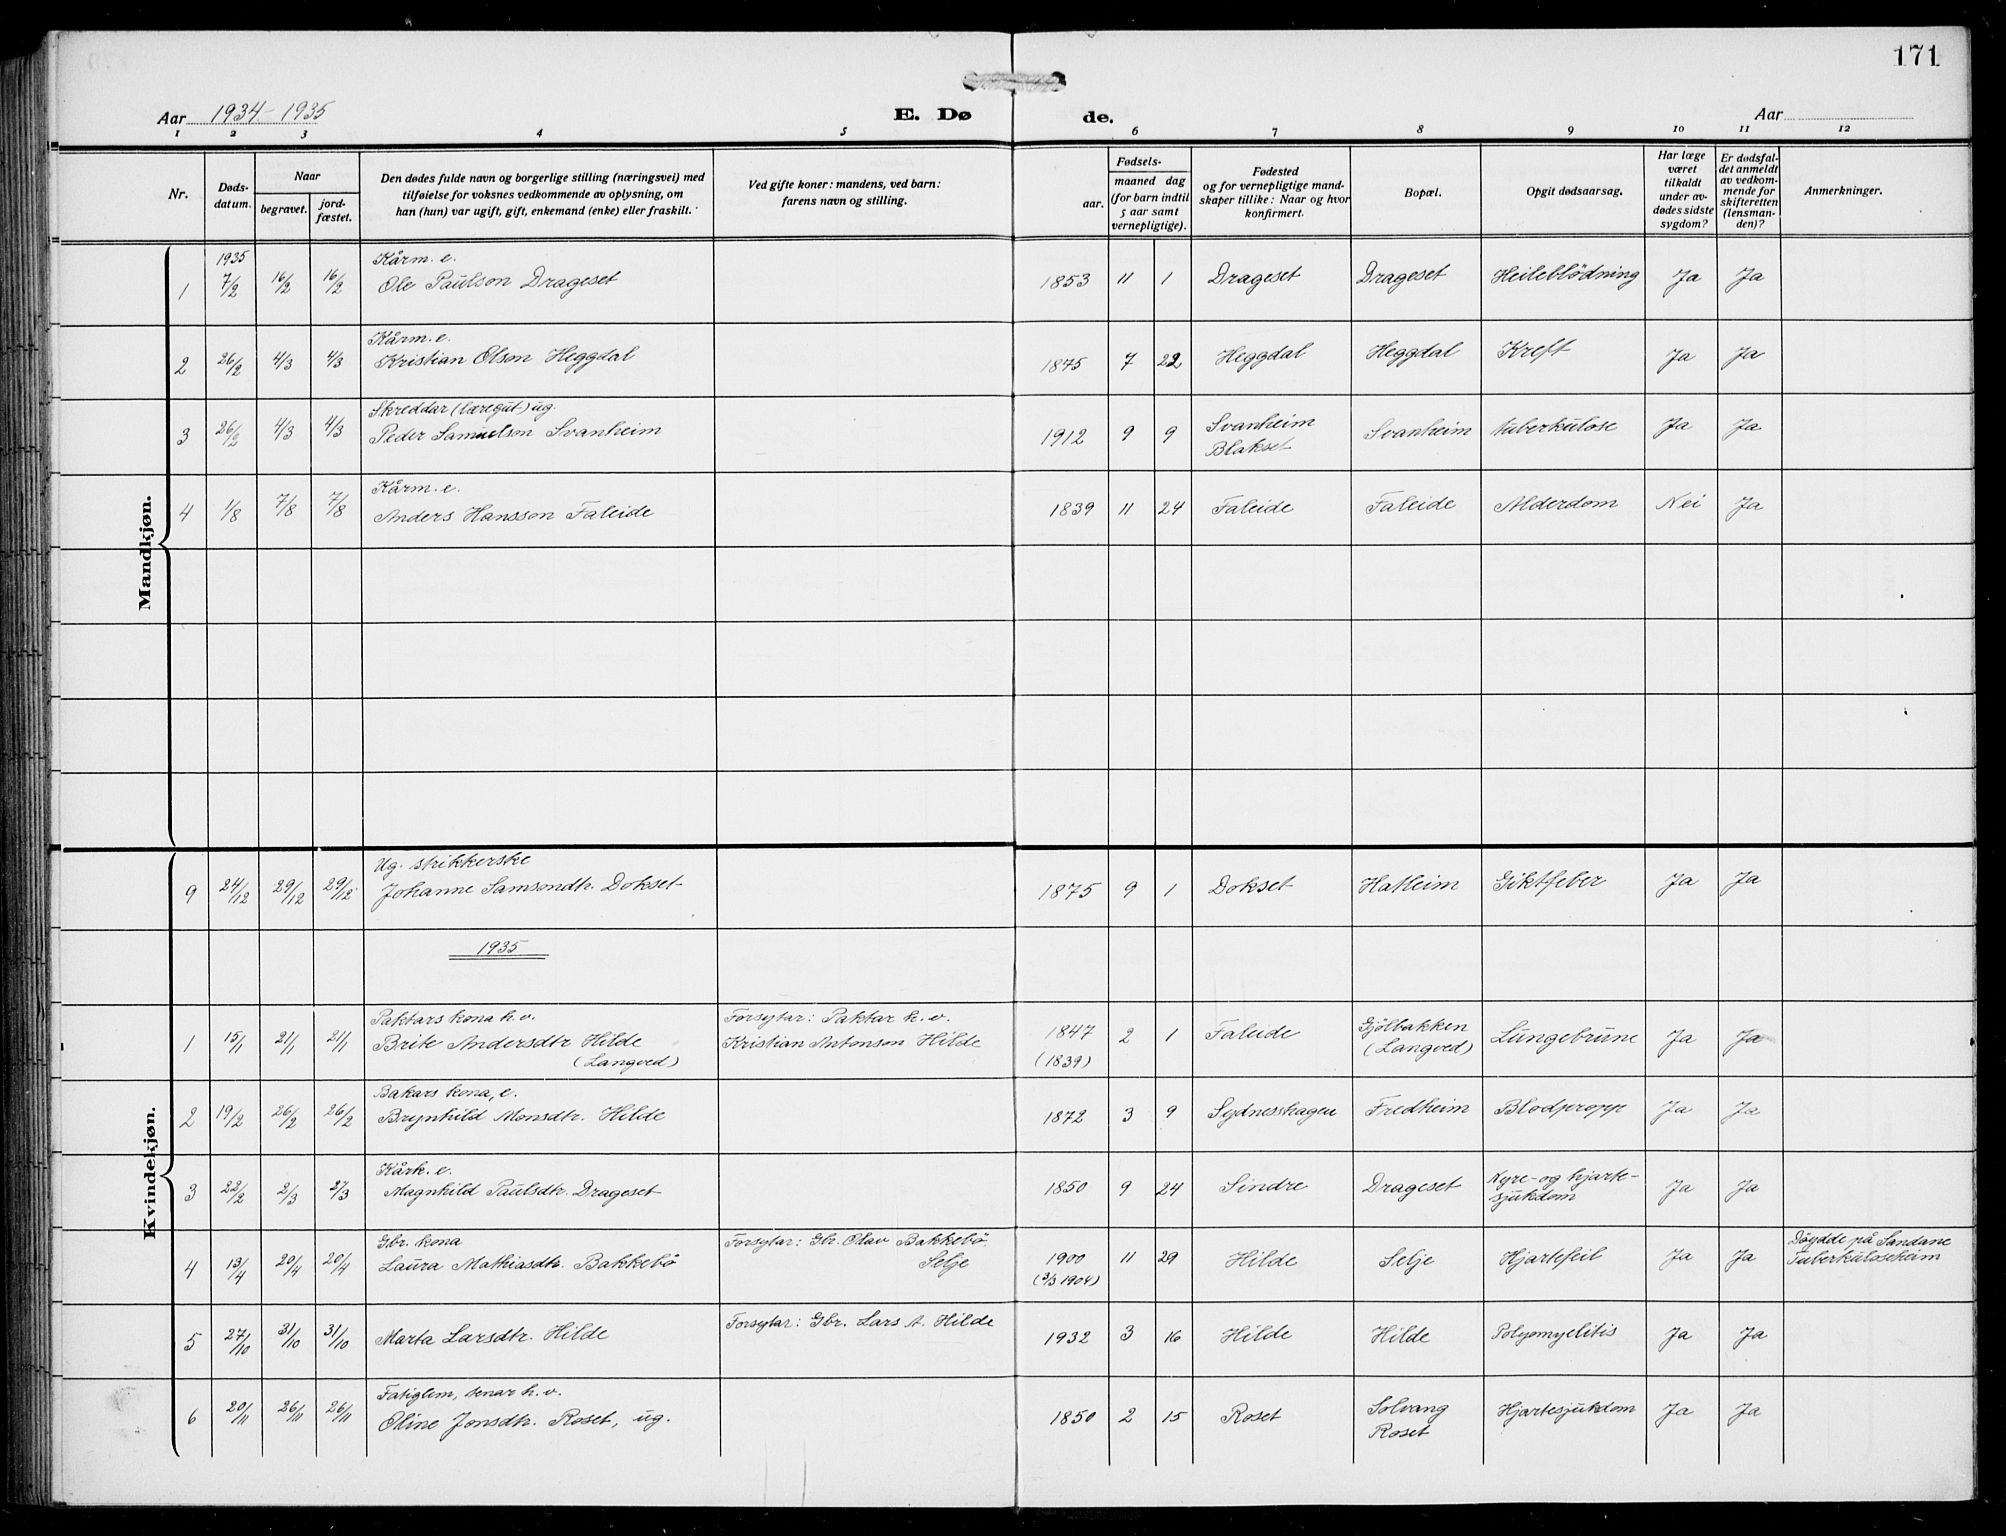 171
Aar 1934-1935 E. Dø de. Aar
1 2 3 4 5 6 7 8 9 10 11 12
Nr.
Døds-
datum.
Naar
begravet.
jord-
fæstet.
Den dødes fulde navn og borgerlige stilling (næringsvei) med
tilføielse for voksnes vedkommende av oplysning, om
han (hun) var ugift, gift, enkemand (enke) eller fraskilt.
Ved gifte koner: mandens, ved barn:
farens navn og stilling.
Fødsels-
aar.
maaned dag
(for barn indtil
5 aar samt
vernepligtige).
Fødested
og for vernepligtige mand-
skaper tillike: Naar og hvor
konfirmert.
Bopæl.
Opgit dødsaarsag.
Har læge
været
tilkaldt
under av-
dødes sidste
sygdom?
Er dødsfal-
det anmeldt
av vedkom-
mende for
skifteretten
(lensman-
den)?
Anmerkninger.
Mandkjøn.
1935 Kårm. e.
1 7/2 16/2 16/2 Ole Paulson Drageset 1853 11 1 Drageset Drageset Heileblödning Ja Ja
Kårm. e.
2 26/2 4/3 4/3 Kristian Olson Heggdal 1875 7 22 Heggdal Heggdal Kreft Ja Ja
Skreddar (læregut) ug.
3 26/2 4/3 4/3 Peder Samuelson Svanheim 1912 9 9 Svanheim Svanheim tuberkulose Ja Ja
Blakset
Kårm. e.
4 1/8 7/8 7/8 Anders Hansson Faleide 1839 11 24 Faleide Faleide Alderdom Nei Ja
Kvindekjøn.
Ug. strikkerske
9 24/12 29/12 29/12 Johanne Samsondtr. Dokset 1875 9 1 Dokset Hatleim Giktfeber Ja Ja
1935
Paktars kona h. v. Forsytar: Paktar h. v.
1 15/1 21/1 21/1 Brite Andersdtr Hilde Kristian Antonson Hilde 1847 2 1 Faleide Gjölbakken Lungebrune Ja Ja
(Langved) (1839) (Langved)
Bakars kona, e.
2 19/2 26/2 26/2 Brynhild Monsdtr. Hilde 1872 3 9 Sydnesshagen Fredheim Blodpropp Ja Ja
Kårk. e.
3 22/2 2/3 2/3 Magnhild Paulsdtr. Drageset 1850 9 24 Sindre Drageset Nyre- og hjarte-
sjukdom Ja Ja
Gbr. kona Forsytar: Gbr. Olav Bakkebö
4 13/4 20/4 20/4 Laura Mathiasdtr. Bakkebö Selje 1900 11 29 Hilde Selje Hjartefeil Ja Ja Döydde på Sandane
(3/3 1904) Tuberkuloseheim
Forsytar: Gbr. Lars A. Hilde
5 27/10 31/10 31/10 Marta Larsdtr. Hilde 1932 3 16 Hilde Hilde Polyomyelitis Ja Ja
Fatiglem, senar h. v.
6 20/11 26/11 26/11 Oline Jonsdtr. Roset, ug. 1850 2 15 Roset Solvang Hjartesjukdom Ja Ja
Roset